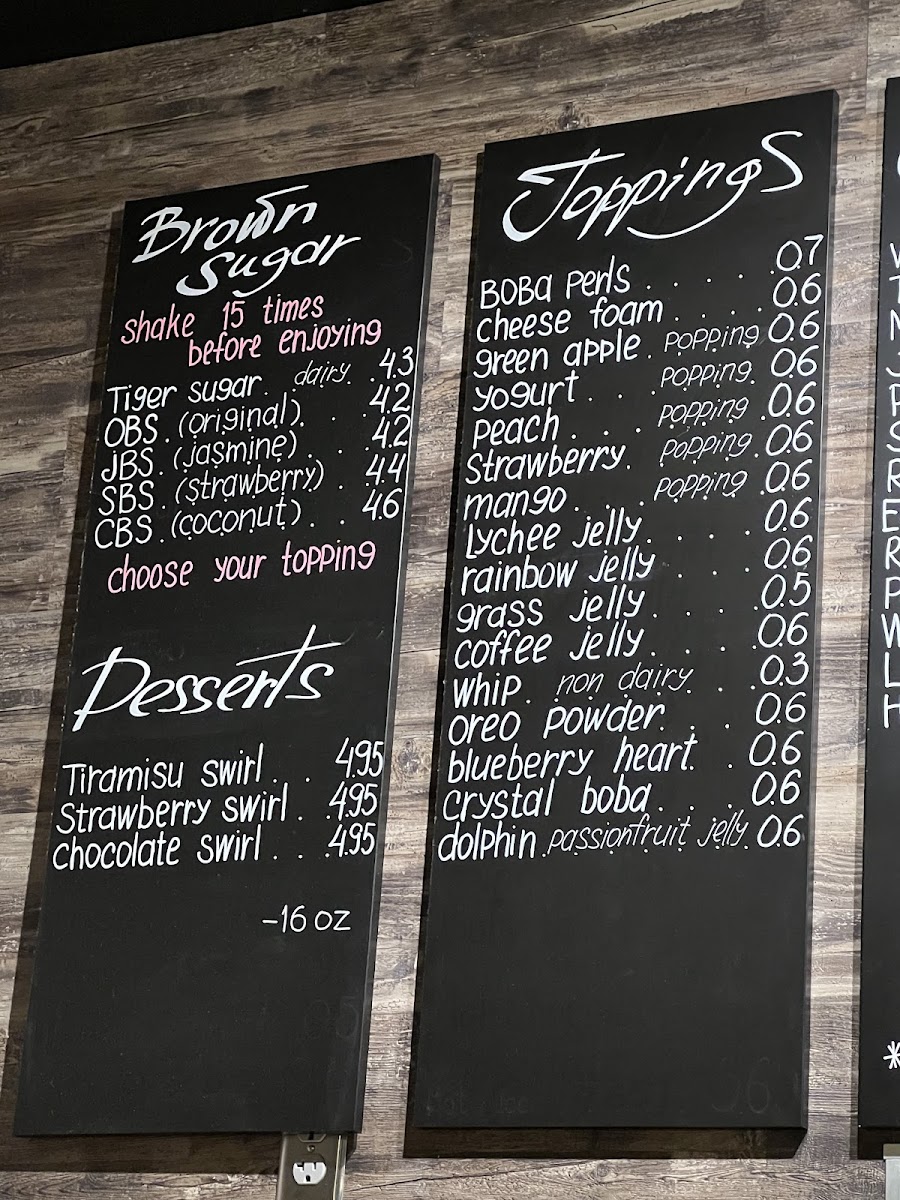 Brown
Sugar
shake 15 times
before enjoying
Tiger sugar. dairy. .4.3
OBS. (original). . . 4.2
JBS. (jasmine). . . 4.2
SBS. (strawberry) . 4.4
CBS. (coconut). . . 4.6
choose your topping
Desserts
Tiramisu swirl. . . 4.95
Strawberry swirl. .4.95
chocolate swirl. . .4.95
-16 oz
Toppings
BOBa Perls . . . . .0.7
cheese foam. . . . .0.6
green apple. popping 0.6
yogurt. . . popping. 0.6
Peach. . . . popping .0.6
Strawberry. popping .0.6
mango. . . . popping 0.6
Lychee jelly. . . . .0.6
rainbow jelly . . . .0.6
grass jelly. . . . .0.5
coffee jelly. . . . 0.6
whip. non dairy . .0.3
oreo Powder. . . .0.6
blueberry heart. . .0.6
crystal boba. . . . 0.6
dolphin .passionfruit jelly. 0.6